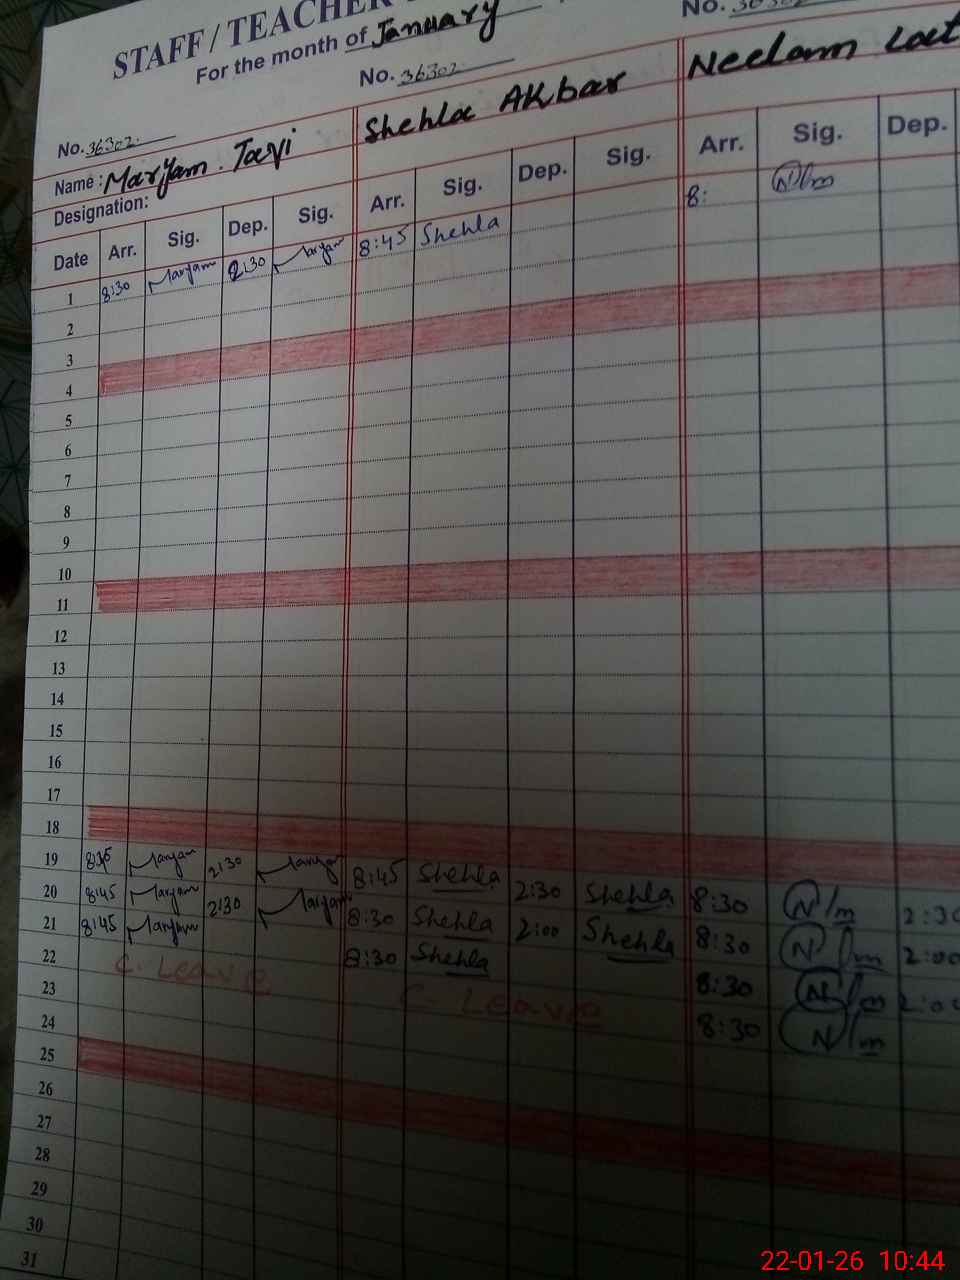 STAFF / TEACHER
For the month of January
No. 36302
No. 36302
No. 36302
Name : Maryam. Shehla Akbar Neelam
Designation:
Date Arr. Sig. Dep. Sig. Arr. Sig. Dep. Sig. Arr. Sig. Dep.
1 8:30 Maryam 2:30 Maryam 8:45 Shehla 8:
2
3
4
5
6
7
8
9
10
11
12
13
14
15
16
17
18
19 Maryam 2:30 Maryam 8:45 Shehla 2:30 Shehla 8:30 Nlm 2:30
20 8:45 Maryam 2:30 Maryam 8:30 Shehla 2:00 Shehla 8:30 Nlm 2:00
21 8:45 Maryam 8:30 Shehla 8:30 2:00
22 C. Leave C. Leave 8:30 Nlm
23
24
25
26
27
28
29
30
31
22-01-26 10:44